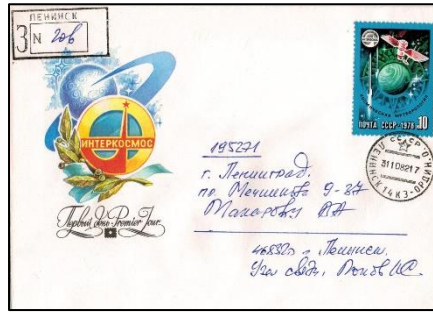 ЛЕНИНСК
З N 206
ИНТЕРКОСМОС
Первый день Premier Jour
ПОЧТА СССР·1978 10
ЛЕНИНСК
31108217
195271
г. Ленинград
пр. Мечникова 9-27
Макаров ВА
г. Ленинск
Узел связи,